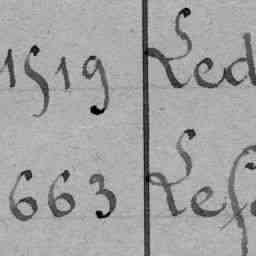 1519 Led
663 Les